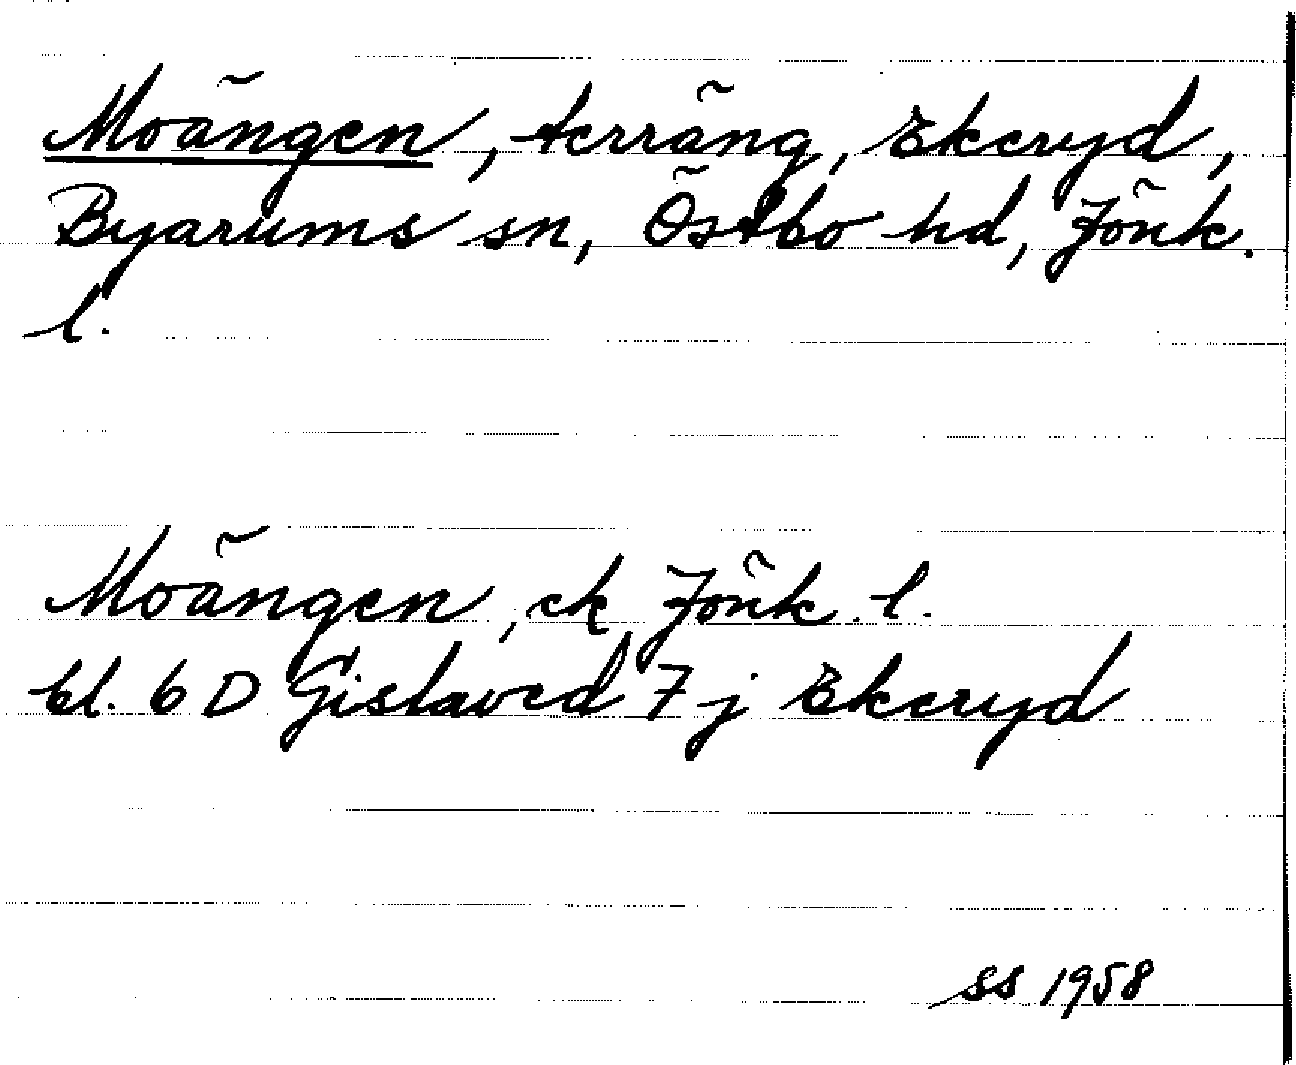 Moängen, terräng, Ekeryd,
Byarums sn, Östbo hd, Jönk.
l.
Moängen, ek Jönk. l.
bl. 6 D Gislaved 7 j Ekeryd
SS 1958